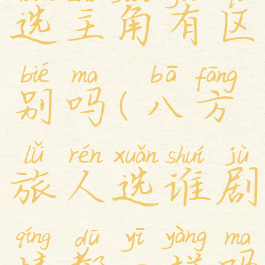 选主角有区
bié ma bā fāng
别吗(八方
lǚ rén xuǎn shuí jù
旅人选谁剧
qíng dū yī yàng ma